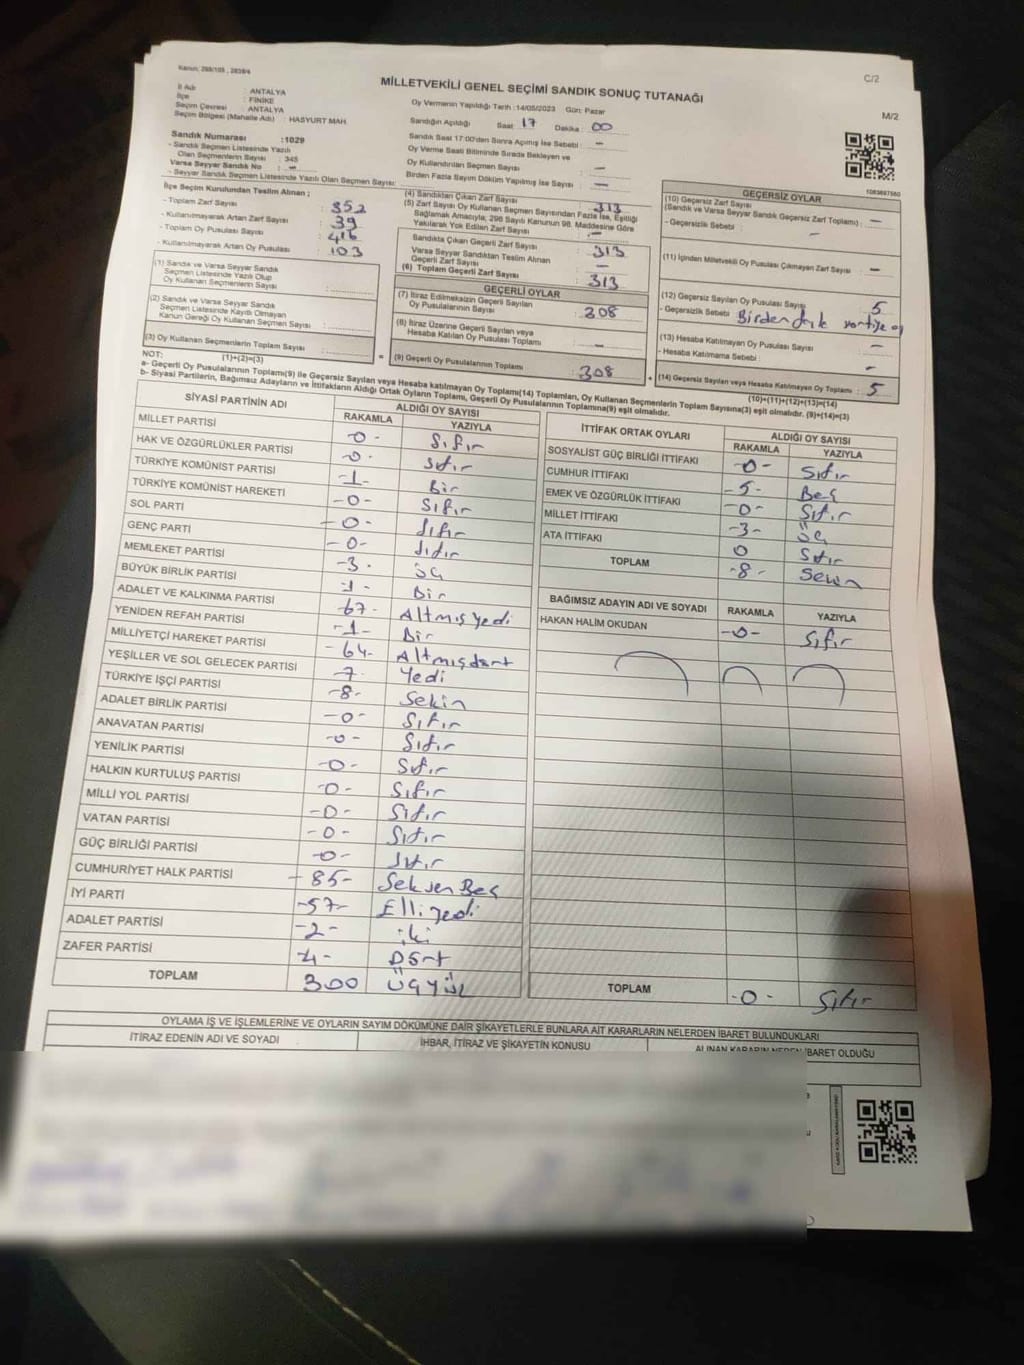 Kanun: 298/105 , 2839/4
C/2
MİLLETVEKİLİ GENEL SEÇİMİ SANDIK SONUÇ TUTANAĞI
M/2
İl Adı : ANTALYA
İlçe : FİNİKE
Seçim Çevresi : ANTALYA
Seçim Bölgesi (Mahalle Adı) : HASYURT MAH.
Sandık Numarası : 1029
- Sandık Seçmen Listesinde Yazılı
Olan Seçmenlerin Sayısı : 345
Varsa Seyyar Sandık No : -
- Seyyar Sandık Seçmen Listesinde Yazılı Olan Seçmen Sayısı:
Oy Vermenin Yapıldığı Tarih :14/05/2023 Gün: Pazar
Sandığın Açıldığı Saat : 17 Dakika : 00
Sandık Saat 17:00'den Sonra Açımış İse Sebebi : -
Oy Verme Saati Bitiminde Sırada Bekleyen ve
Oy Kullandırılan Seçmen Sayısı : -
Birden Fazla Sayım Döküm Yapılmış İse Sayısı : -
1083697560
İlçe Seçim Kurulundan Teslim Alınan ;
- Toplam Zarf Sayısı : 352
- Kullanılmayarak Artan Zarf Sayısı : 39
- Toplam Oy Pusulası Sayısı : 416
- Kullanılmayarak Artan Oy Pusulası : 103
(1) Sandık ve Varsa Seyyar Sandık
Seçmen Listesinde Yazılı Olup
Oy Kullanan Seçmenlerin Sayısı :
(2) Sandık ve Varsa Seyyar Sandık
Seçmen Listesinde Kayıtlı Olmayan
Kanun Gereği Oy Kullanan Seçmen Sayısı :
(3) Oy Kullanan Seçmenlerin Toplam Sayısı :
(1)+(2)=(3)
(4) Sandıktan Çıkan Zarf Sayısı : 313
(5) Zarf Sayısı Oy Kullanan Seçmen Sayısından Fazla İse, Eşitliği
Sağlamak Amacıyla, 298 Sayılı Kanunun 98. Maddesine Göre
Yakılarak Yok Edilen Zarf Sayısı : -
Sandıkta Çıkan Geçerli Zarf Sayısı : 313
Varsa Seyyar Sandıktan Teslim Alınan
Geçerli Zarf Sayısı : -
(6) Toplam Geçerli Zarf Sayısı : 313
GEÇERLİ OYLAR
(7) İtiraz Edilmeksizin Geçerli Sayılan
Oy Pusulalarının Sayısı : 308
(8) İtiraz Üzerine Geçerli Sayılan veya
Hesaba Katılan Oy Pusulası Toplamı : -
(9) Geçerli Oy Pusulalarının Toplamı : 308
GEÇERSİZ OYLAR
(10) Geçersiz Zarf Sayısı
(Sandık ve Varsa Seyyar Sandık Geçersiz Zarf Toplamı) : -
- Geçersizlik Sebebi : -
(11) İçinden Milletvekili Oy Pusulası Çıkmayan Zarf Sayısı : -
(12) Geçersiz Sayılan Oy Pusulası Sayısı : 5
- Geçersizlik Sebebi :
(13) Hesaba Katılmayan Oy Pusulası Sayısı : -
- Hesaba Katılmama Sebebi : -
(14) Geçersiz Sayılan veya Hesaba Katılmayan Oy Toplamı : 5
(10)+(11)+(12)+(13)=(14)
NOT:
a- Geçerli Oy Pusulalarının Toplamı(9) ile Geçersiz Sayılan veya Hesaba katılmayan Oy Toplamı(14) Toplamları, Oy Kullanan Seçmenlerin Toplam Sayısına(3) eşit olmalıdır. (9)+(14)=(3)
b- Siyasi Partilerin, Bağımsız Adayların ve İttifakların Aldığı Ortak Oyların Toplamı, Geçerli Oy Pusulalarının Toplamına(9) eşit olmalıdır.
SİYASİ PARTİNİN ADI ALDIĞI OY SAYISI
RAKAMLA YAZIYLA
MİLLET PARTİSİ -0- Sıfır
HAK VE ÖZGÜRLÜKLER PARTİSİ -0- Sıfır
TÜRKİYE KOMÜNİST PARTİSİ -1- Bir
TÜRKİYE KOMÜNİST HAREKETİ -0- Sıfır
SOL PARTİ -0- Sıfır
GENÇ PARTİ -0- Sıfır
MEMLEKET PARTİSİ -3- üç
BÜYÜK BİRLİK PARTİSİ -1- Bir
ADALET VE KALKINMA PARTİSİ -67- Altmış yedi
YENİDEN REFAH PARTİSİ -1- Bir
MİLLİYETÇİ HAREKET PARTİSİ -64- Altmışdört
YEŞİLLER VE SOL GELECEK PARTİSİ -7- Yedi
TÜRKİYE İŞÇİ PARTİSİ -8- Sekin
ADALET BİRLİK PARTİSİ -0- Sıfır
ANAVATAN PARTİSİ -0- Sıfır
YENİLİK PARTİSİ -0- Sıfır
HALKIN KURTULUŞ PARTİSİ -0- Sıfır
MİLLİ YOL PARTİSİ -0- Sıfır
VATAN PARTİSİ -0- Sıfır
GÜÇ BİRLİĞİ PARTİSİ -0- Sıfır
CUMHURİYET HALK PARTİSİ -85- Seksen Beş
İYİ PARTİ -57- Elli yedi
ADALET PARTİSİ -2- iki
ZAFER PARTİSİ -4- Dört
TOPLAM 300 Üçyüz
İTTİFAK ORTAK OYLARI ALDIĞI OY SAYISI
RAKAMLA YAZIYLA
SOSYALİST GÜÇ BİRLİĞİ İTTİFAKI -0- Sıfır
CUMHUR İTTİFAKI -5- Beş
EMEK VE ÖZGÜRLÜK İTTİFAKI -0- Sıfır
MİLLET İTTİFAKI -3- Üç
ATA İTTİFAKI 0 Sıfır
TOPLAM -8- Sekin
BAĞIMSIZ ADAYIN ADI VE SOYADI RAKAMLA YAZIYLA
HAKAN HALİM OKUDAN -0- Sıfır
TOPLAM -0- Sıfır
OYLAMA İŞ VE İŞLEMLERİNE VE OYLARIN SAYIM DÖKÜMÜNE DAİR ŞİKAYETLERLE BUNLARA AİT KARARLARIN NELERDEN İBARET BULUNDUKLARI
İTİRAZ EDENİN ADI VE SOYADI İHBAR, İTİRAZ VE ŞİKAYETİN KONUSU ALINAN KARARIN NEDEN İBARET OLDUĞU